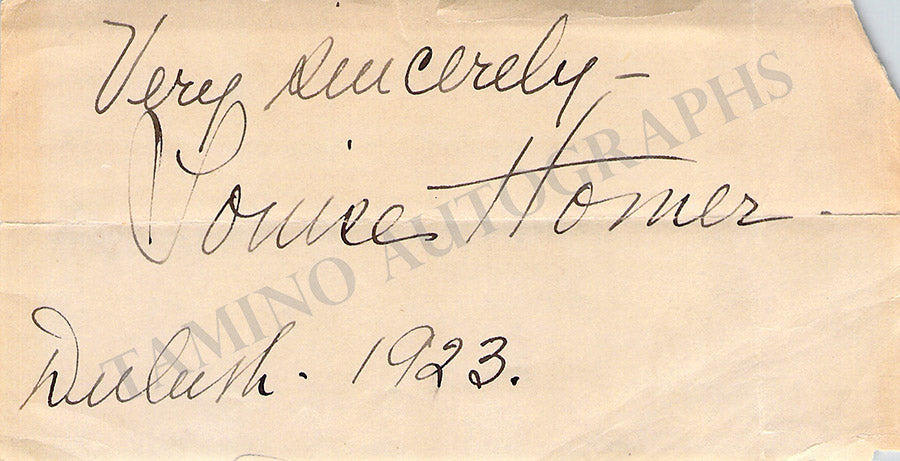 Very sincerely –
Louise Homer.
Duluth. 1923.
TAMINO AUTOGRAPHS